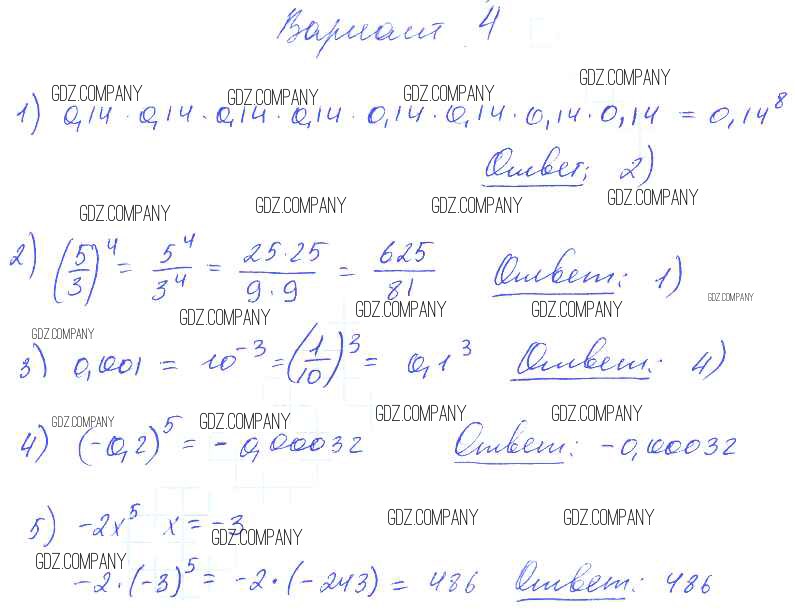 Вариант 4
GDZ.COMPANY GDZ.COMPANY GDZ.COMPANY GDZ.COMPANY
1) 0,14 · 0,14 · 0,14 · 0,14 · 0,14 · 0,14 · 0,14 · 0,14 = 0,14⁸
Ответ: 2)
GDZ.COMPANY GDZ.COMPANY GDZ.COMPANY GDZ.COMPANY
2) (5/3)⁴ = 5⁴/3⁴ = 25·25/9·9 = 625/81 Ответ: 1)
GDZ.COMPANY GDZ.COMPANY GDZ.COMPANY GDZ.COMPANY GDZ.COMPANY
3) 0,001 = 10⁻³ = (1/10)³ = 0,1³ Ответ: 4)
GDZ.COMPANY GDZ.COMPANY GDZ.COMPANY GDZ.COMPANY
4) (-0,2)⁵ = -0,00032 Ответ: -0,00032
5) -2x⁵ x = -3
GDZ.COMPANY GDZ.COMPANY GDZ.COMPANY GDZ.COMPANY
-2·(-3)⁵ = -2·(-243) = 486 Ответ: 486